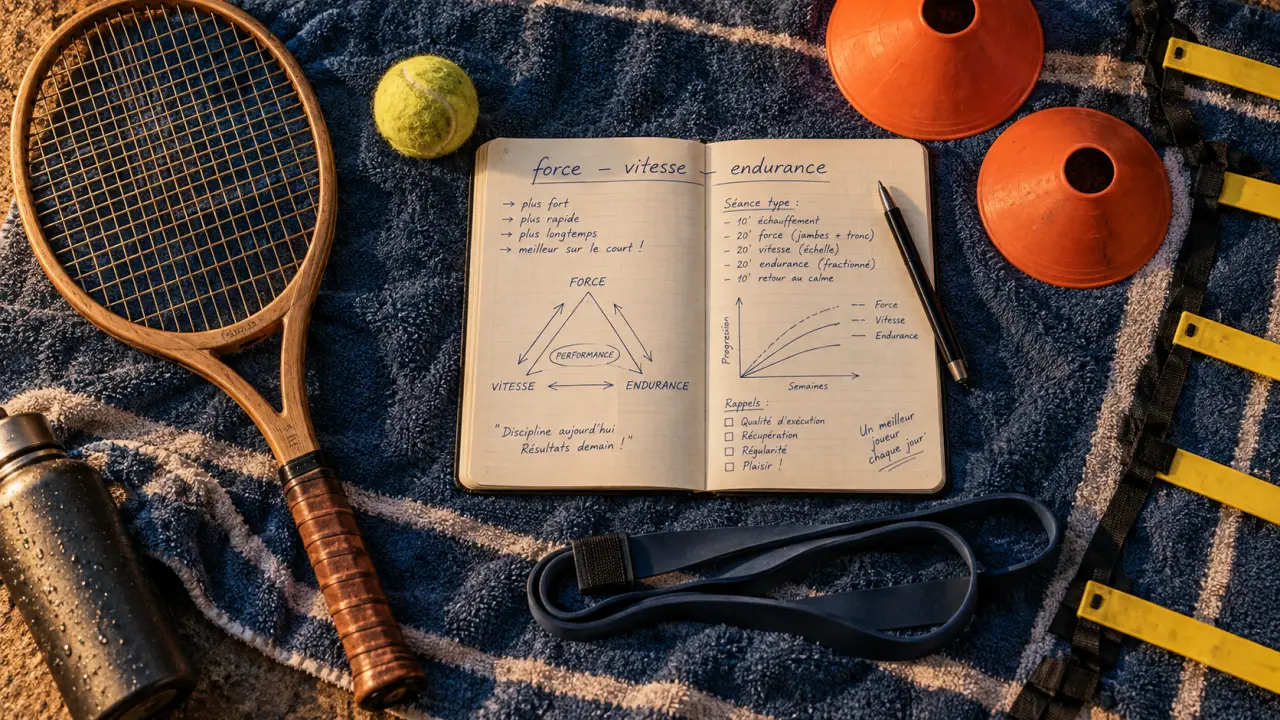 force – vitesse – endurance
→ plus fort
→ plus rapide
→ plus longtemps
→ meilleur sur le court !
FORCE
PERFORMANCE
VITESSE
ENDURANCE
"Discipline aujourd'hui
Résultats demain !"
Séance type :
- 10' échauffement
- 20' force (jambes + tronc)
- 20' vitesse (échelle)
- 20' endurance (fractionné)
- 10' retour au calme
Progression
Force
Vitesse
Endurance
Semaines
Rappels :
☐ Qualité d'exécution
☐ Récupération
☐ Régularité
☐ Plaisir !
Un meilleur
joueur
chaque jour